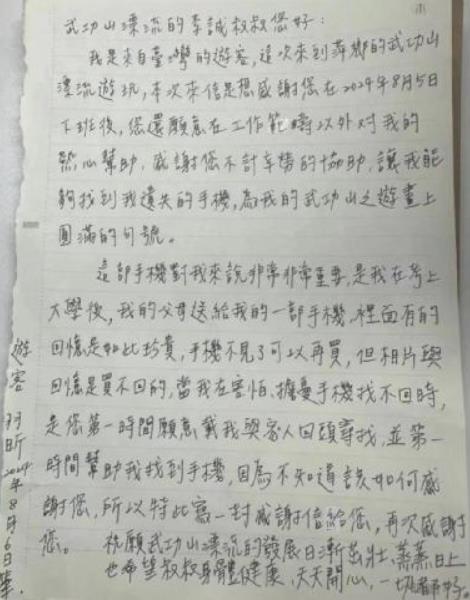 武功山漂流的李誠叔叔您好:
我是來自臺灣的遊客,這次來到萍鄉的武功山
漂流遊玩,本次來信是想感謝您在2024年8月5日
下班後,您還願意在工作範疇以外對我的
熱心幫助,感謝您不計辛勞的協助,讓我能
夠找到我遺失的手機,為我的武功山之遊畫上
圓滿的句號。
這部手機對我來說非常非常重要,是我在考上
大學後,我的父母送給我的一部手機,裡面有的
回憶是如此珍貴,手機不見了可以再買,但相片與
回憶是買不回的,當我在害怕、擔憂手機找不回時,
是您第一時間願意載我與家人回頭尋找,並第一
時間幫助我找到手機,因為不知道該如何感
謝您,所以特此寫一封感謝信給您,再次感謝
您。 祝願武功山漂流的發展日漸茁壯、蒸蒸日上
也希望叔叔身體健康,天天開心,一切都好。
遊客 羽昕 2024年8月6日筆